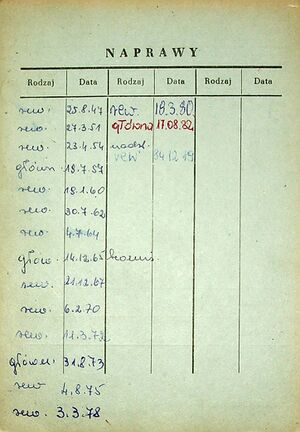 NAPRAWY
Rodzaj Data Rodzaj Data Rodzaj Data
rew. 25.8.47 rew. 18.3.80.
rew. 27.3.51 główna 17.08.82
rew. 23.4.54 nadzw.
rew
główn. 18.7.57
rew. 18.1.60
rew. 30.7.62
rew. 4.7.64
głów. 14.12.65
rew. 21.12.67
rew. 6.2.70
rew. 11.3.72
główn. 31.8.73
rew 4.8.75
rew. 3.3.78